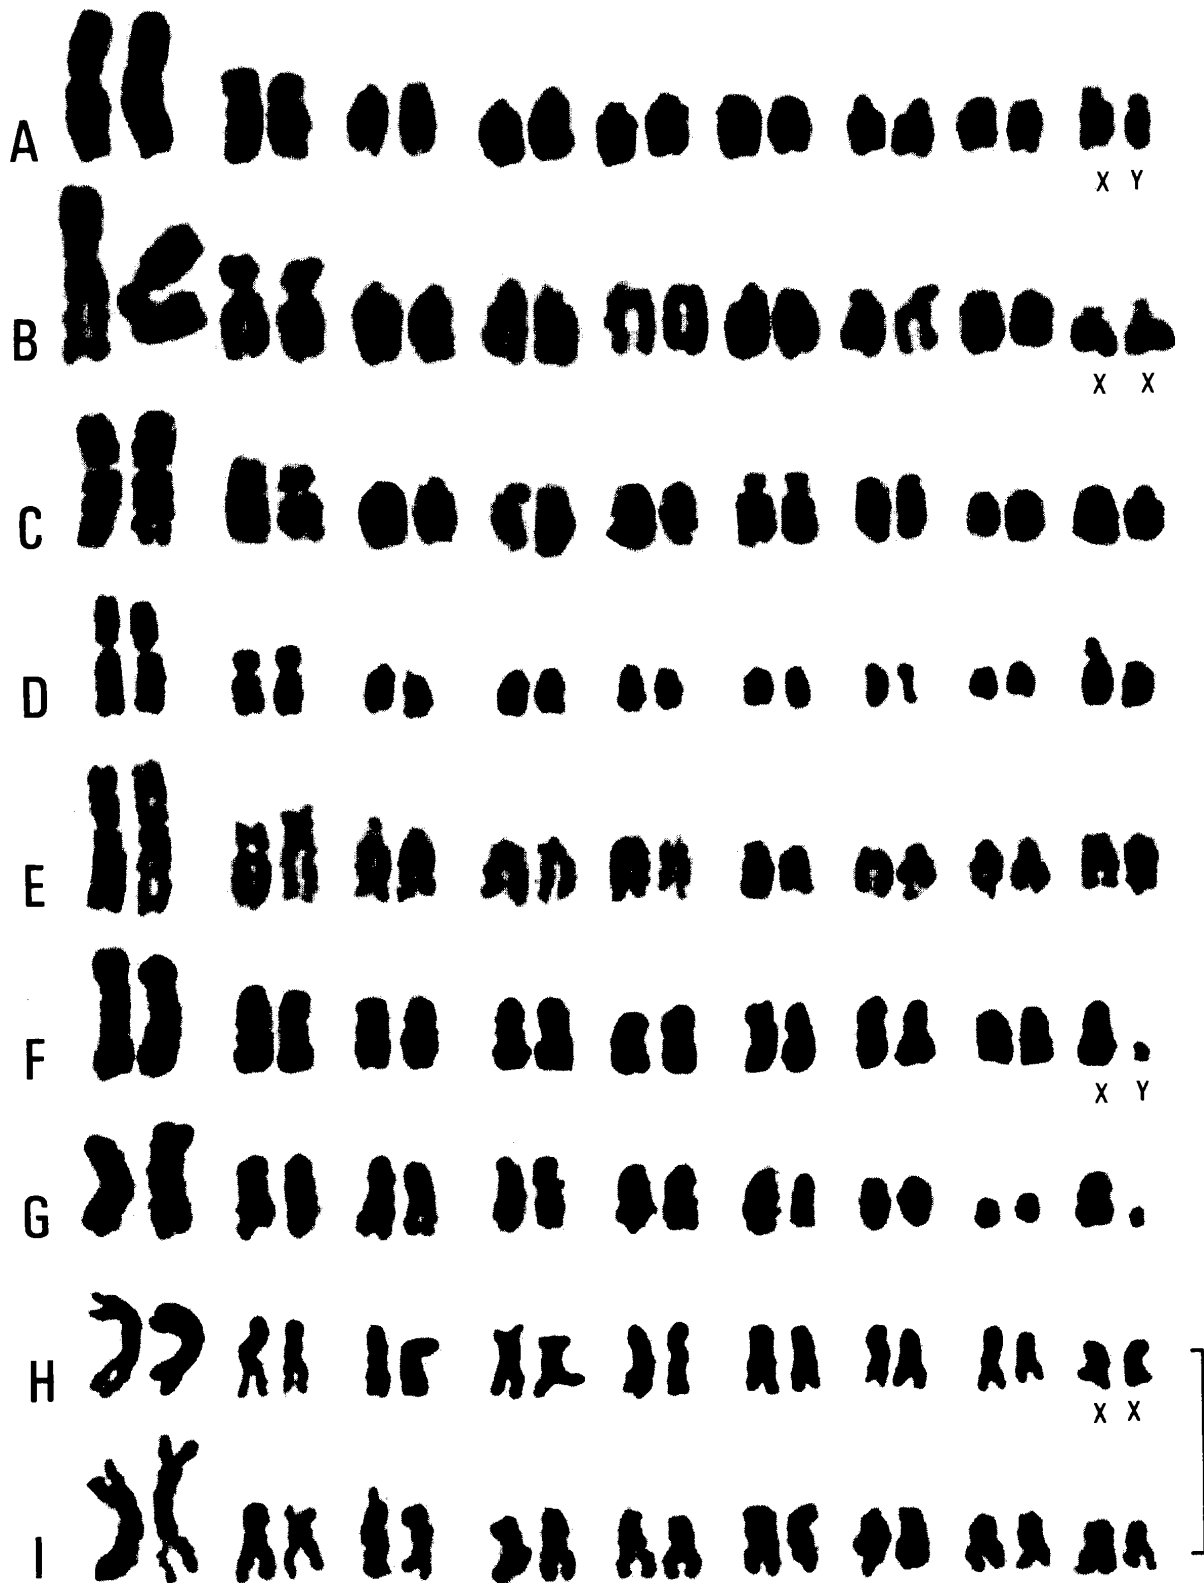 A
X Y
B
X X
C
D
E
F
X Y
G
H
X X
I